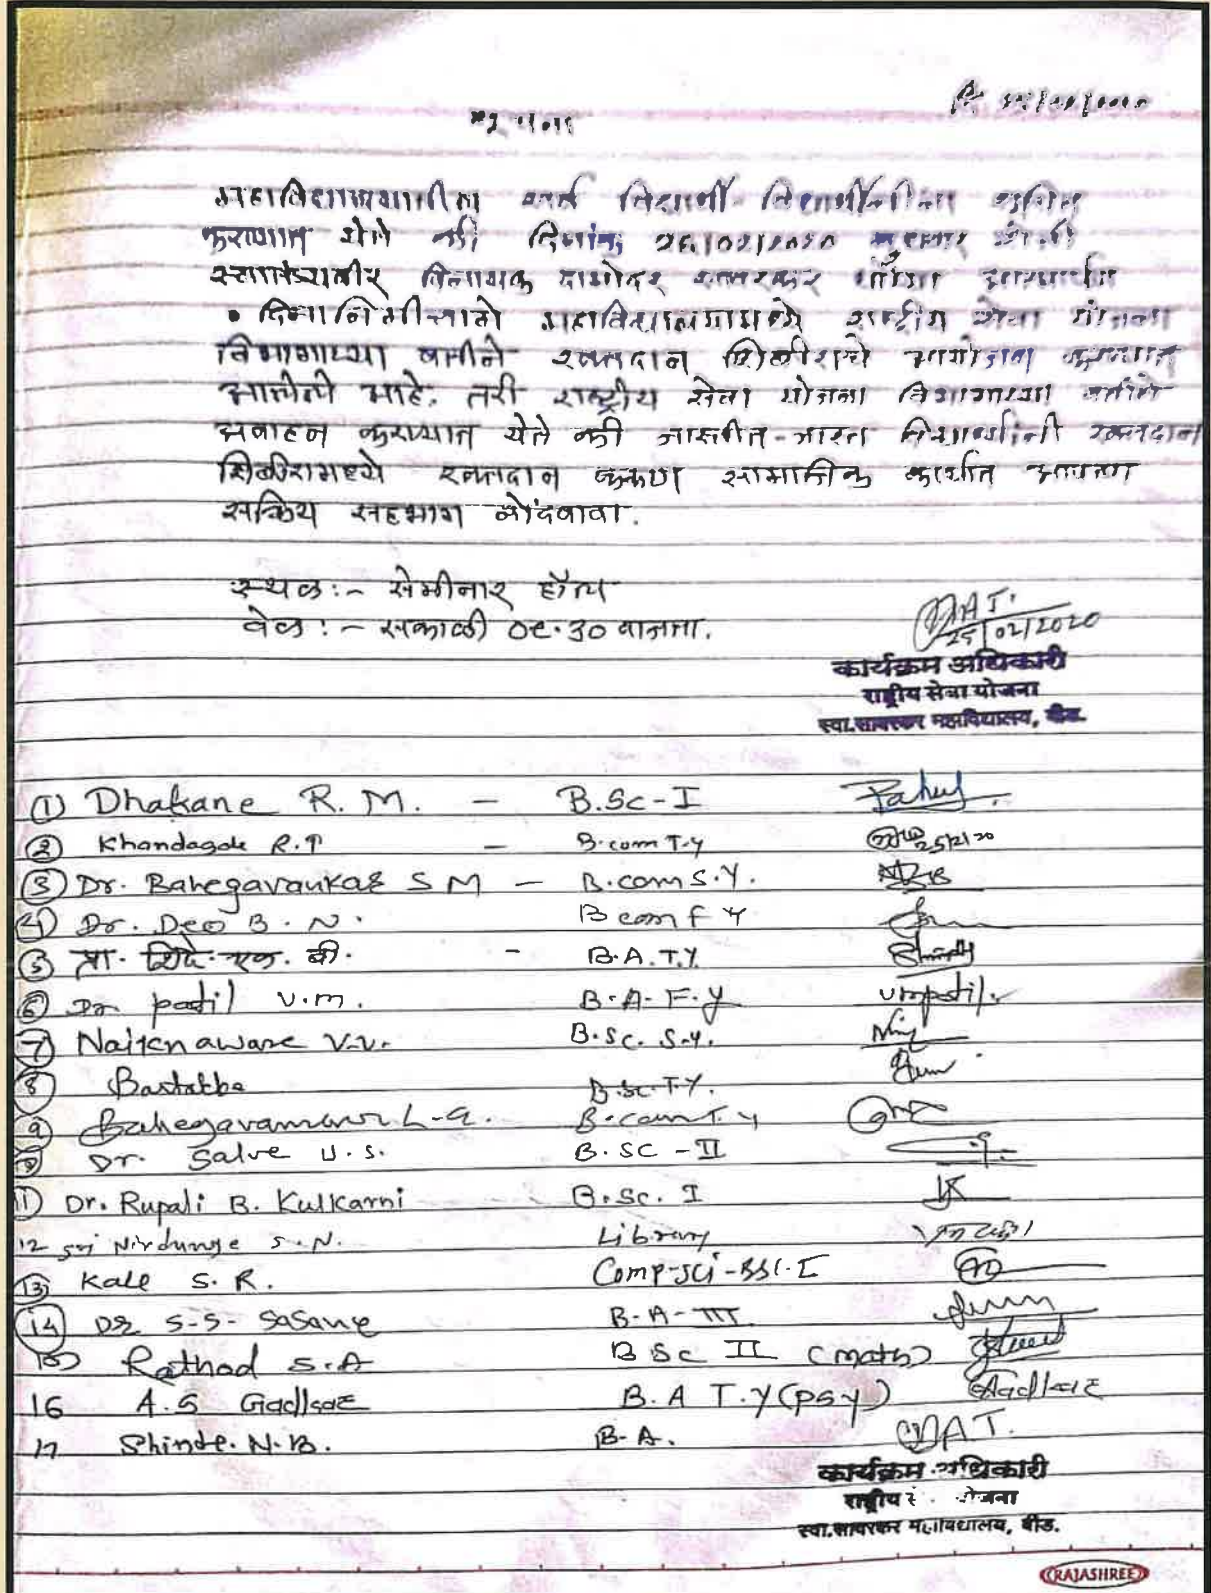 सूचना
महाविद्यालयातील सर्व विद्यार्थी विद्यार्थीनींना सूचित
करण्यात येते की दिनांक 26/02/2020 बुधवार रोजी
स्वातंत्र्यवीर विनायक दामोदर सावरकर यांच्या आत्मार्पण
• दिनानिमीत्ताने महाविद्यालयामध्ये राष्ट्रीय सेवा योजना
विभागाच्या वतीने रक्तदान शिबीराचे आयोजन करण्यात
आलेले आहे. तरी राष्ट्रीय सेवा योजना विभागाच्या वतीने
अवाहन करण्यात येते की जास्तीत-जास्त विद्यार्थ्यांनी रक्तदान
शिबीरामध्ये रक्तदान करून सामाजिक कार्यात आपला
सक्रिय सहभाग नोंदवावा.
स्थळ:- सेमीनार हॉल
वेळ:- सकाळी 09.30 वाजता.
25/02/2020
कार्यक्रम अधिकारी
राष्ट्रीय सेवा योजना
स्वा.सावरकर महाविद्यालय, बीड.
① Dhakane R. M. - B.Sc-I
② Khandagale R.P - B.com T.Y 25/2/20
③ Dr. Bahegavankar S M - B.com S.Y.
④ Dr. Deo B. N. B com F Y
⑤ प्रा. शिंदे एन. बी. - B.A. T.Y.
⑥ Dr patil v.m. B.A. F.Y vmpatil
⑦ Naiknaware V.V. B.Sc. S.Y.
⑧ Bastabbe B.Sc. T.Y.
⑨ Bahegavankar L.G. B.com T.Y
Dr. Salve U.S. B.SC - II
⑪ Dr. Rupali B. Kulkarni B.Sc. I
12 Sri Nirdunge S.N. Library
⑬ Kale S. R. Comp-Sci-BSC-I
⑭ Dr S-S- Sasane B-A-III
⑮ Rathod S.A B Sc II (maths)
16 A.S Gadkar B.A T.Y (psy) Gadkar
17 Shinde. N.B. B-A.
कार्यक्रम अधिकारी
राष्ट्रीय योजना
स्वा.सावरकर महाविद्यालय, बीड.
RAJASHREE